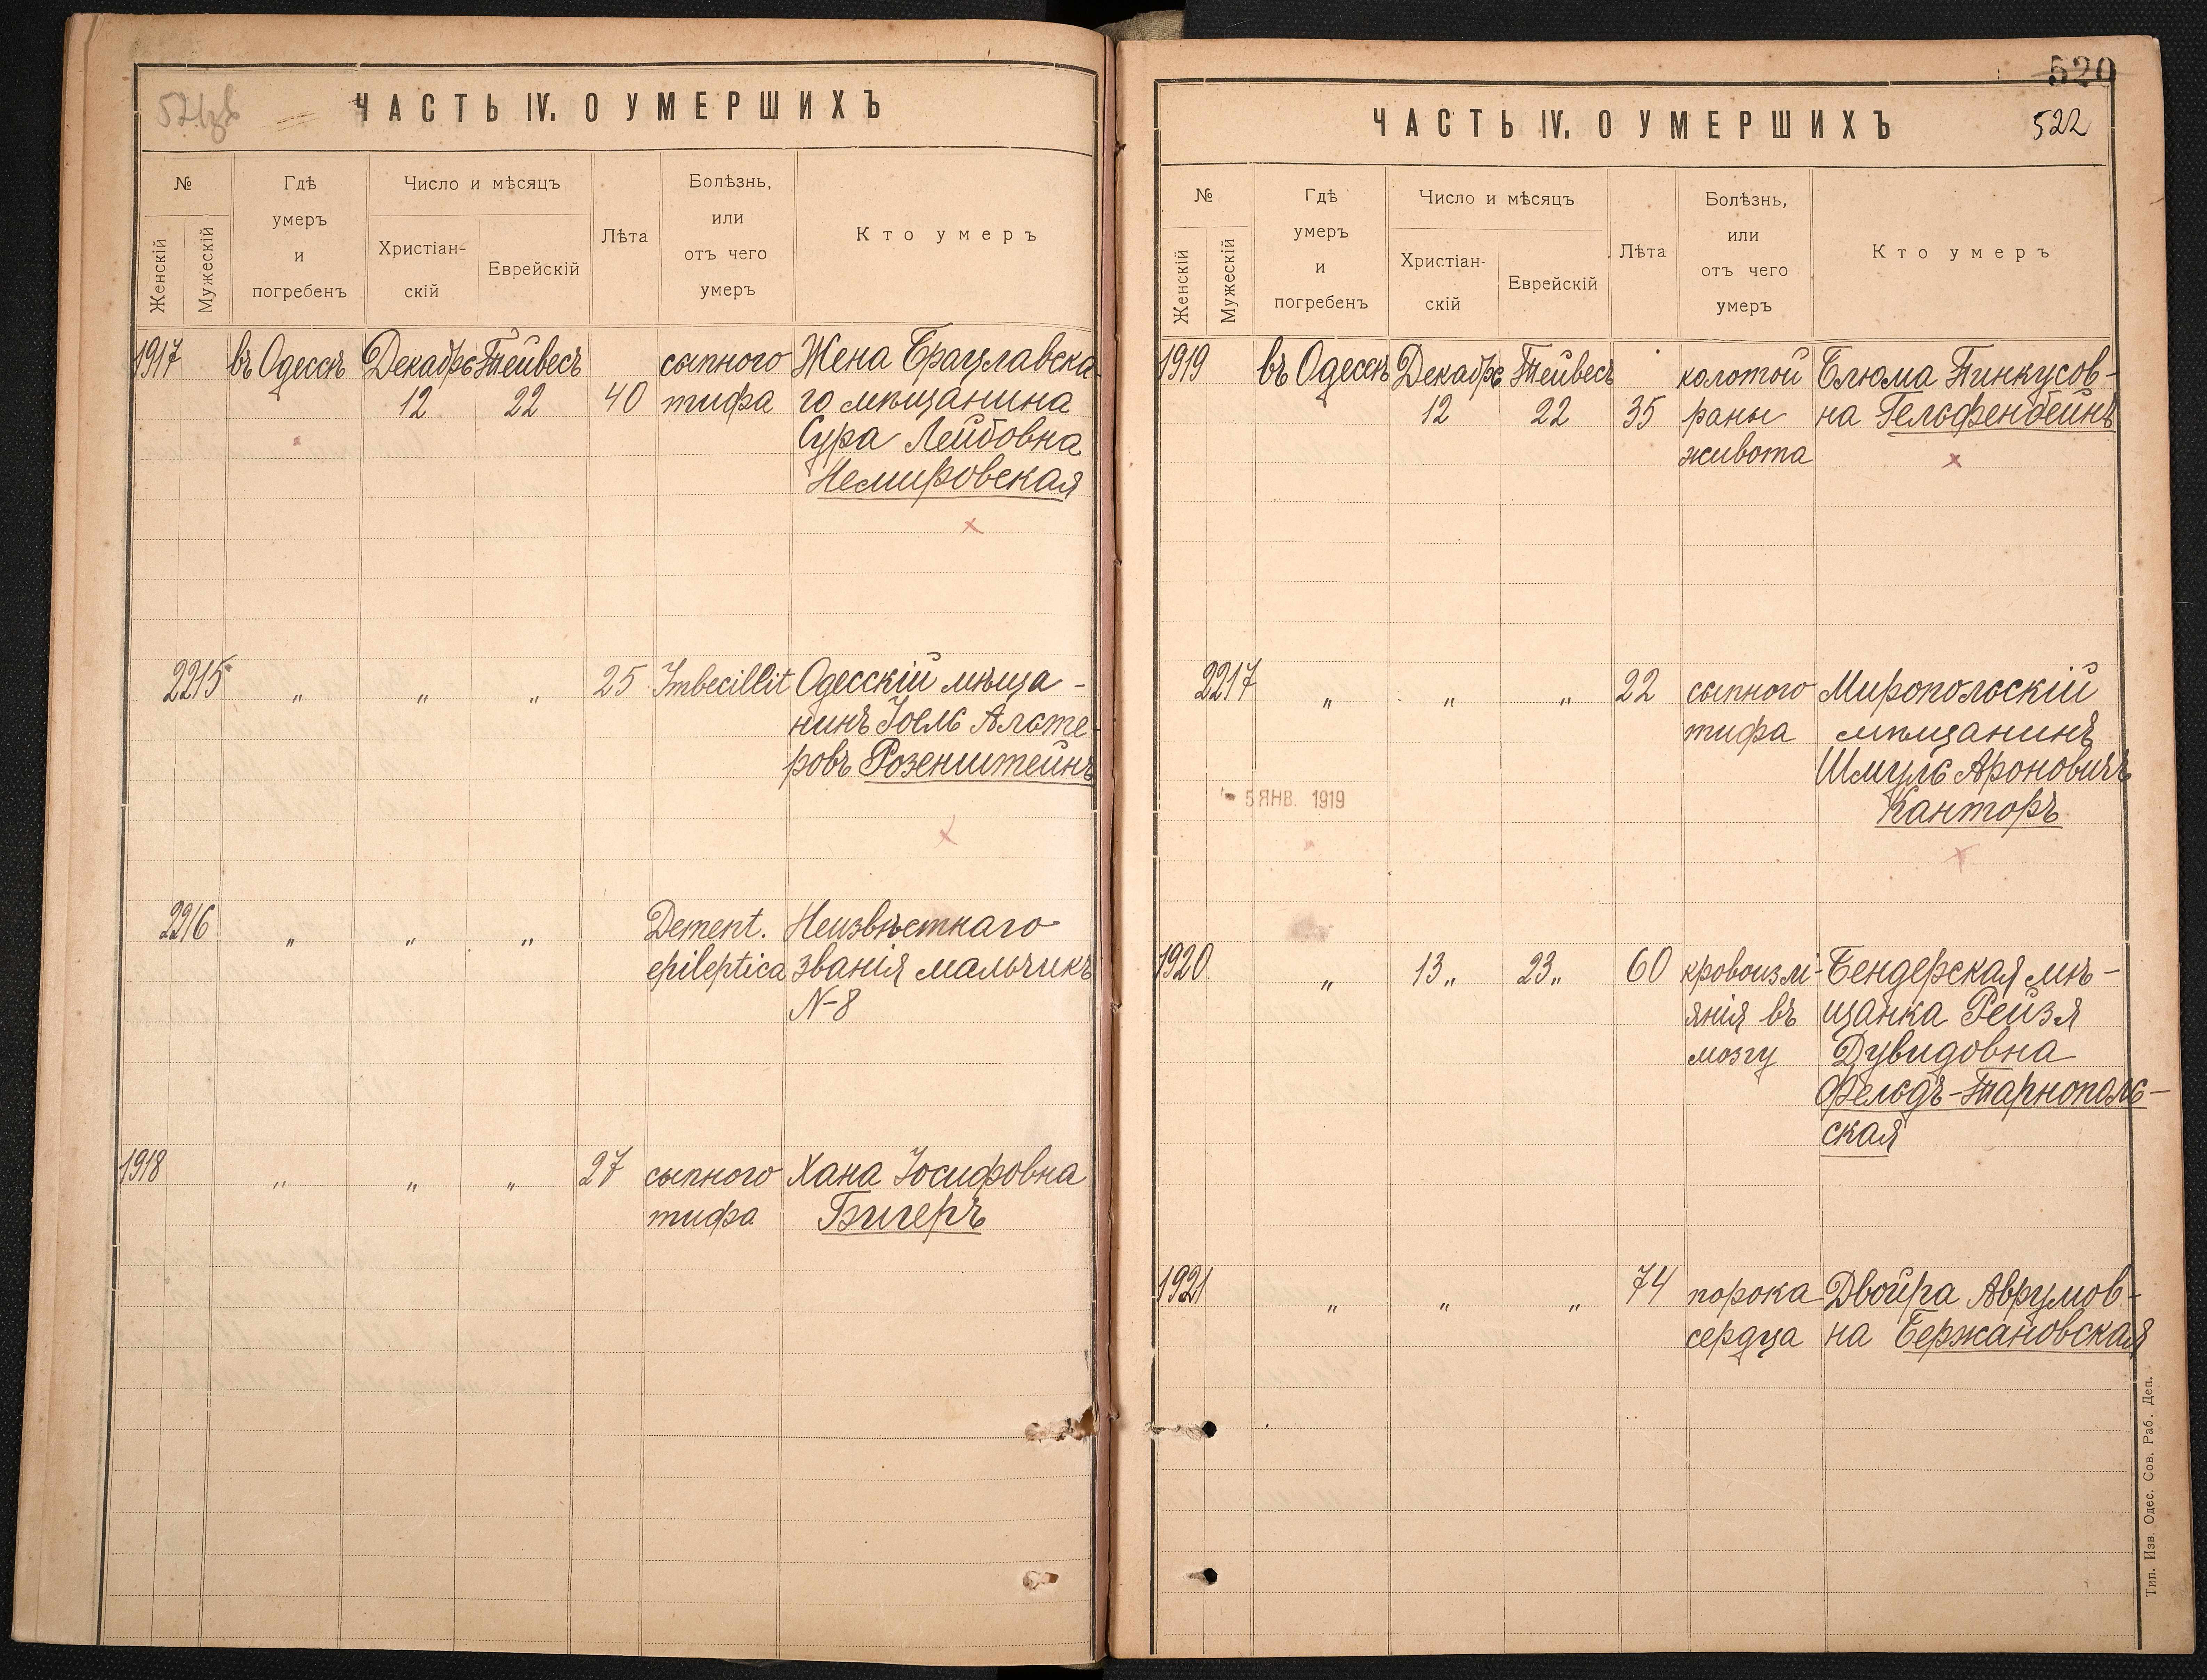 ЧАСТЬ IV. О УМЕРШИХЪ
№
Женскій
Мужескій
Гдѣ
умеръ
и
погребенъ
Число и мѣсяцъ
Христіан-
скій
Еврейскій
Лѣта
Болѣзнь,
или
отъ чего
умеръ
Кто умеръ
1917 въ Одессѣ Декабрь Тейвесъ сыпного Жена Брацлавска-
12 22 40 тифа го мѣщанина
Сура Лейбовна
Немировская
2215 " " " 25 Imbecillit Одесскій мѣща-
нинъ Іоель Алъте-
ровъ Розенштейнъ
2216 " " " Dement. Неизвѣстнаго
epileptica званія мальчикъ
N-8
1918 " " " 27 сыпного Хана Іосифовна
тифа Бигеръ
520
ЧАСТЬ IV. О УМЕРШИХЪ 522
№
Женскій
Мужескій
Гдѣ
умеръ
и
погребенъ
Число и мѣсяцъ
Христіан-
скій
Еврейскій
Лѣта
Болѣзнь,
или
отъ чего
умеръ
Кто умеръ
1919 въ Одессѣ Декабрь Тейвесъ колотой Блюма Пинкусов-
12 22 35 раны на Гельфенбейнъ
живота
2217 " " " 22 сыпного Миропольскій
тифа мѣщанинъ
Шмуль Ароновичъ
- 5 ЯНВ. 1919
Канторъ
1920 " 13 " 23 " 60 кровоизлі- Бендерская мѣ-
янія въ щанка Рейзя
мозгу Дувидовна
Фельдъ-Тарнополь-
ская
1921 " " " 74 порока Двойра Аврумов-
сердца на Бержановская
Тип. Изв. Одес. Сов. Раб. Деп.